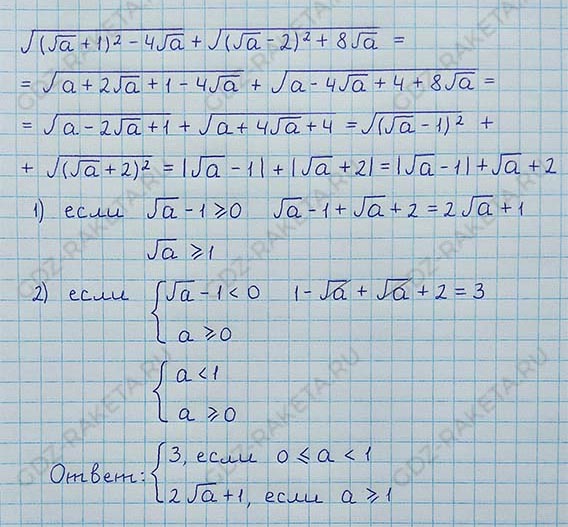 √((√a + 1)² - 4√a) + √((√a - 2)² + 8√a) =
= √(a + 2√a + 1 - 4√a) + √(a - 4√a + 4 + 8√a) =
= √(a - 2√a + 1) + √(a + 4√a + 4) = √((√a - 1)²) +
+ √((√a + 2)²) = |√a - 1| + |√a + 2| = |√a - 1| + √a + 2
1) если √a - 1 ≥ 0 √a - 1 + √a + 2 = 2√a + 1
√a ≥ 1
2) если { √a - 1 < 0 1 - √a + √a + 2 = 3
a ≥ 0
{ a < 1
a ≥ 0
Ответ: { 3, если 0 ≤ a < 1
2√a + 1, если a ≥ 1
GDZ-RAKETA.RU